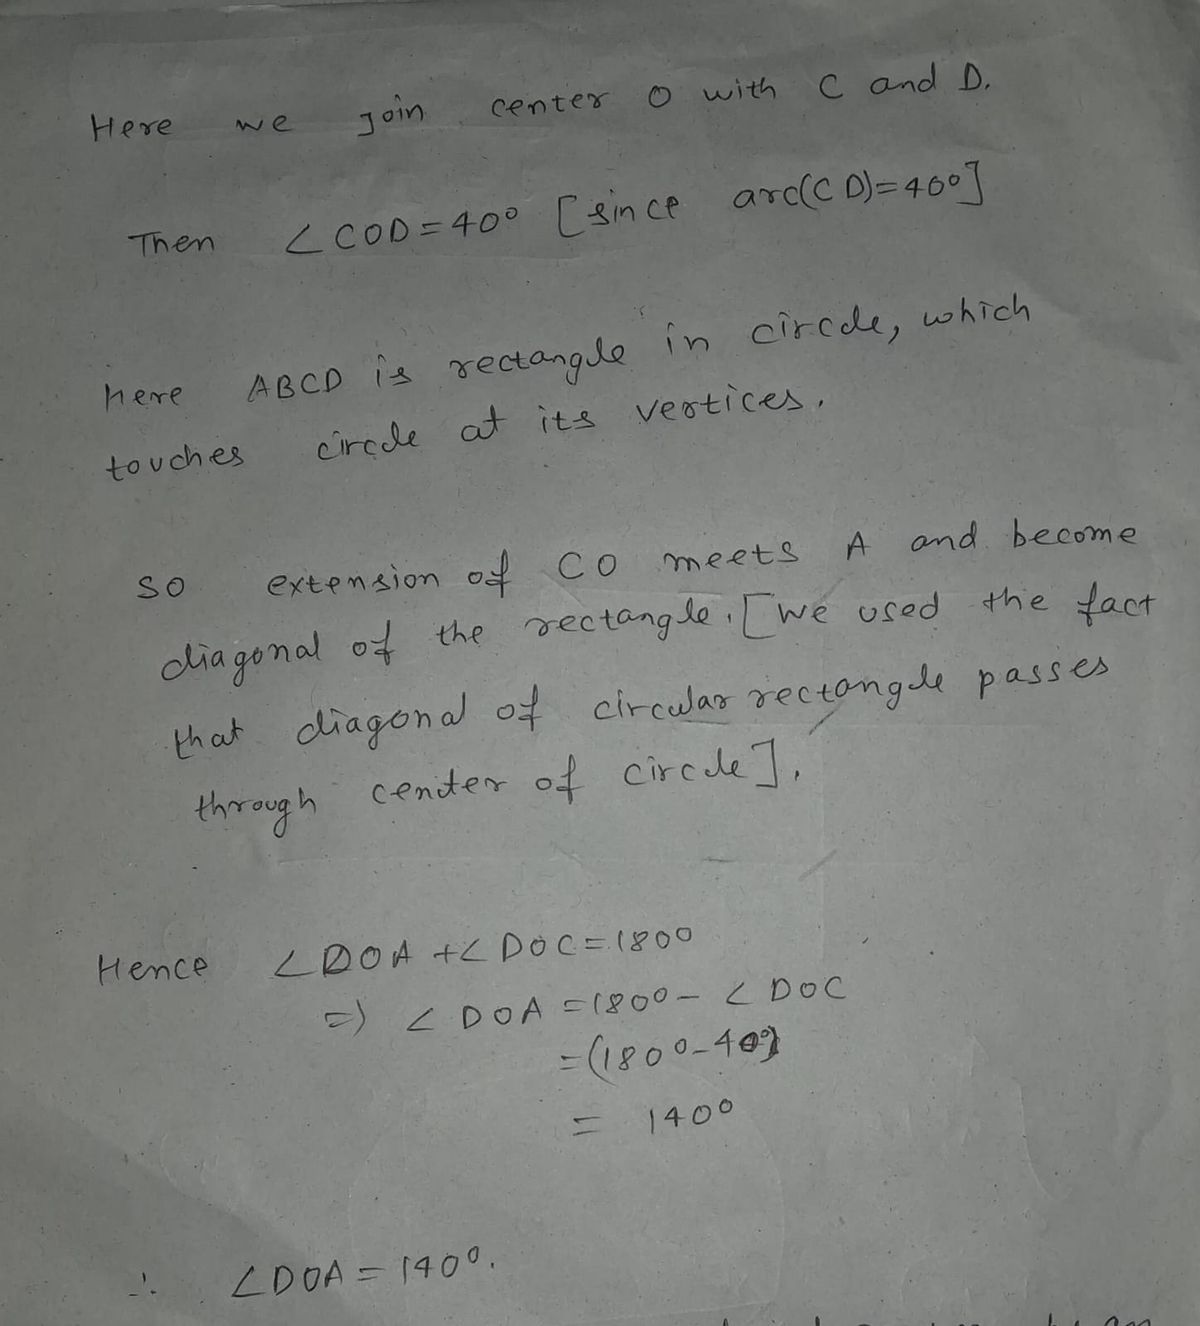 Here we join center O with C and D.
Then ∠COD = 40° [since arc(CD)=40°]
here ABCD is rectangle in circle, which
touches circle at its vertices.
so extension of CO meets A and become
diagonal of the rectangle. [we used the fact
that diagonal of circular rectangle passes
through center of circle].
Hence ∠DOA + ∠DOC = 180°
=) ∠DOA = 180° - ∠DOC
= (180° - 40°)
= 140°
∴ ∠DOA = 140°.